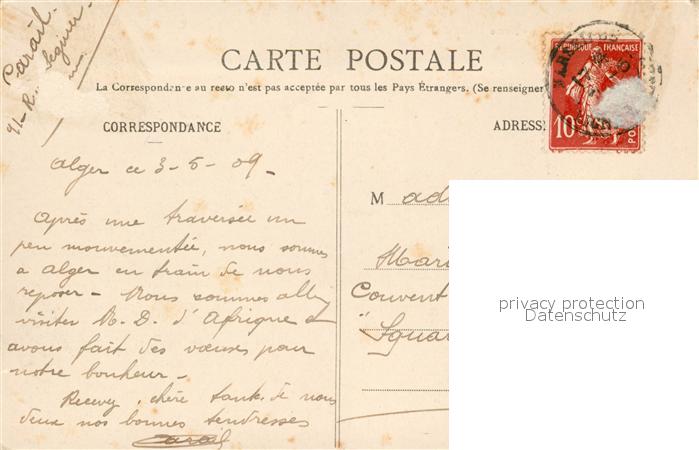 Carail
91 - R. Seguier
CARTE POSTALE
La Correspondance au recto n'est pas acceptée par tous les Pays Étrangers. (Se renseigner
CORRESPONDANCE
ADRESSE
RÉPUBLIQUE FRANÇAISE
10
Alger ce 3-5-09-
Après une traversée un
peu mouvementée, nous sommes
a alger en train de nous
reposer - Nous sommes allés
visiter N. D. d'Afrique et
avons fait des vœux pour
notre bonheur -
Recevez, chère tante de nous
deux nos bonnes tendresses
Carail
M ad
Mari
Couvent
"Squa
privacy protection
Datenschutz